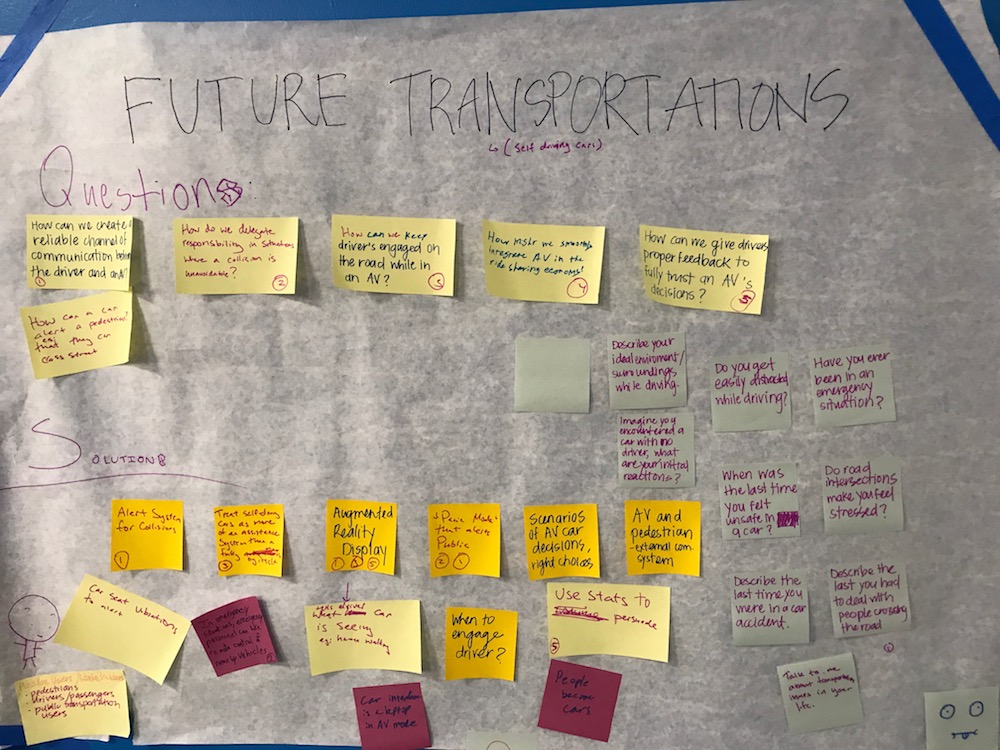 FUTURE TRANSPORTATIONS
↳ (self driving cars)
Questions:
How can we create a
reliable channel of
communication between
the driver and an AV?
1
How do we delegate
responsibility in situations
where a collision is
unavoidable?
2
How can we keep
driver's engaged on
the road while in
an AV?
3
How might we smoothly
integrate AV in the
ride sharing economy?
4
How can we give drivers
proper feedback to
fully trust an AV's
decisions?
5
How can a car
alert a pedestrian?
that they can
cross street
Describe your
ideal enviroment/
surroundings
while driving.
Do you get
easily distracted
while driving?
Have you ever
been in an
emergency
situation?
Imagine you
encountered a
car with no
driver, what
are your initial
reactions?
When was
the last time
you felt
unsafe in
a car?
Do road
intersections
make you feel
stressed?
Describe the
last time you
were in a car
accident.
Describe the
last you had
to deal with
people crossing
the road
Talk to me
about transportation
issues in your
life.
SOLUTIONS
Alert System
for Collisions
1
Treat self driving
cars as more
of an assistance
system than a
fully
vehicle
3
Augmented
Reality
Display
1
5
"Panic Mode"
that alerts
Public
2 1
Scenarios
of AV car
decisions,
right choices
AV and
pedestrian
-external com.
system
Car seat vibrations
to alert
In emergency
situations, emergency
personnel can take
remote control of
nearby vehicles
car
is seeing
eg: human walking
When to
engage
driver?
Use stats to
persuade
5
Users
• pedestrians
• drivers/passengers
• public transportation
users
Car interior
is a laptop
in AV mode
People
become
cars